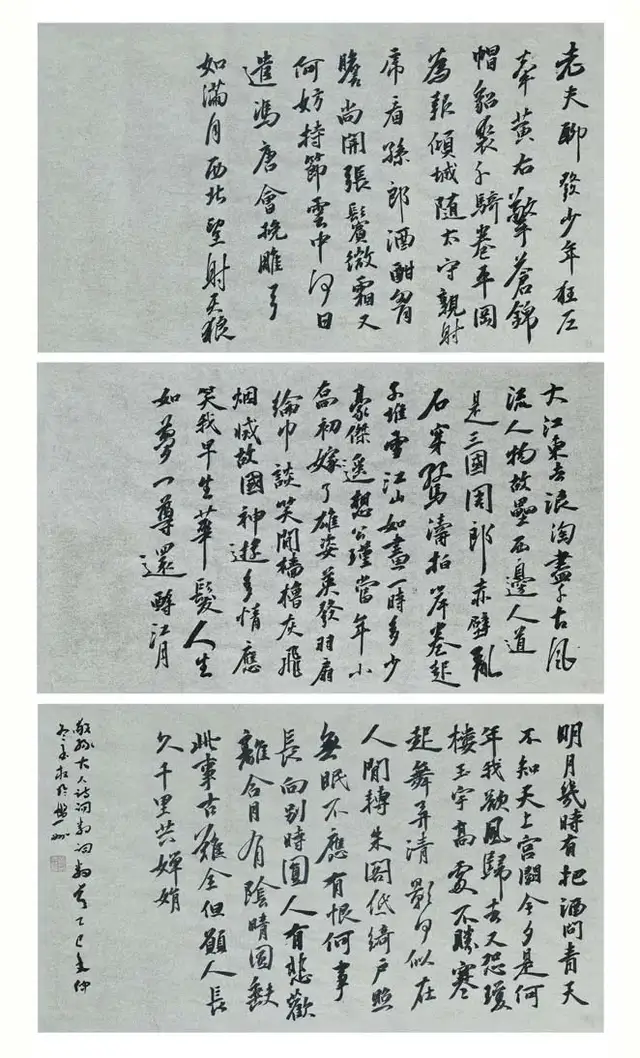 老夫聊發少年狂左
牽黃右擎蒼錦
帽貂裘千騎卷平岡
為報傾城随太守親射
虎看孫郎酒酣胷
膽尚開張鬢微霜又
何妨持節雲中何日
遣馮唐會挽雕弓
如滿月西北望射天狼
大江東去浪淘盡千古風
流人物故壘西邊人道
是三國周郎赤壁亂
石穿驚濤拍岸卷起
千堆雪江山如畫一時多少
豪傑遥想公瑾當年小
喬初嫁了雄姿英發羽扇
綸巾談笑間檣櫓灰飛
烟滅故國神遊多情應
笑我早生華髮人生
如夢一尊還酹江月
明月幾時有把酒問青天
不知天上宮闕今夕是何
年我欲風歸去又恐瓊
樓玉宇高處不勝寒
起舞弄清影何似在
人間轉朱閣低綺戶照
無眠不應有恨何事
長向別時圓人有悲歡
離合月有陰晴圓缺
此事古難全但願人長
久千里共嬋娟
大人詩詞 乙巳